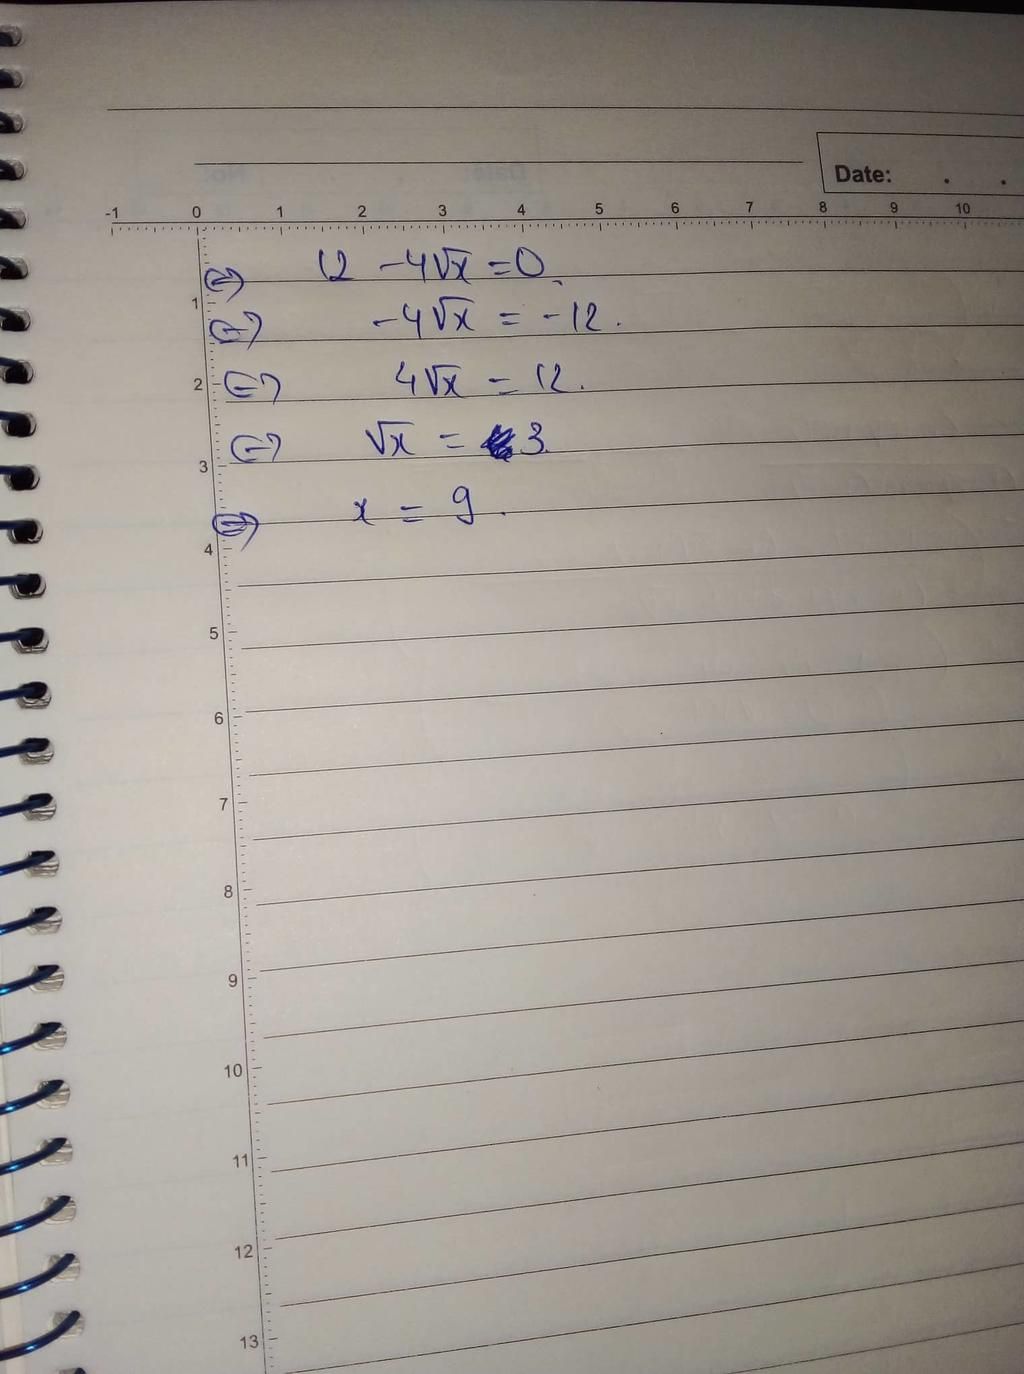 Date: . .
-1 0 1 2 3 4 5 6 7 8 9 10
⇔ 12 -4√x = 0.
1
⇔ -4√x = -12.
2 ⇔ 4√x = 12.
3 ⇔ √x = 3.
⇔ x = 9.
4
5
6
7
8
9
10
11
12
13